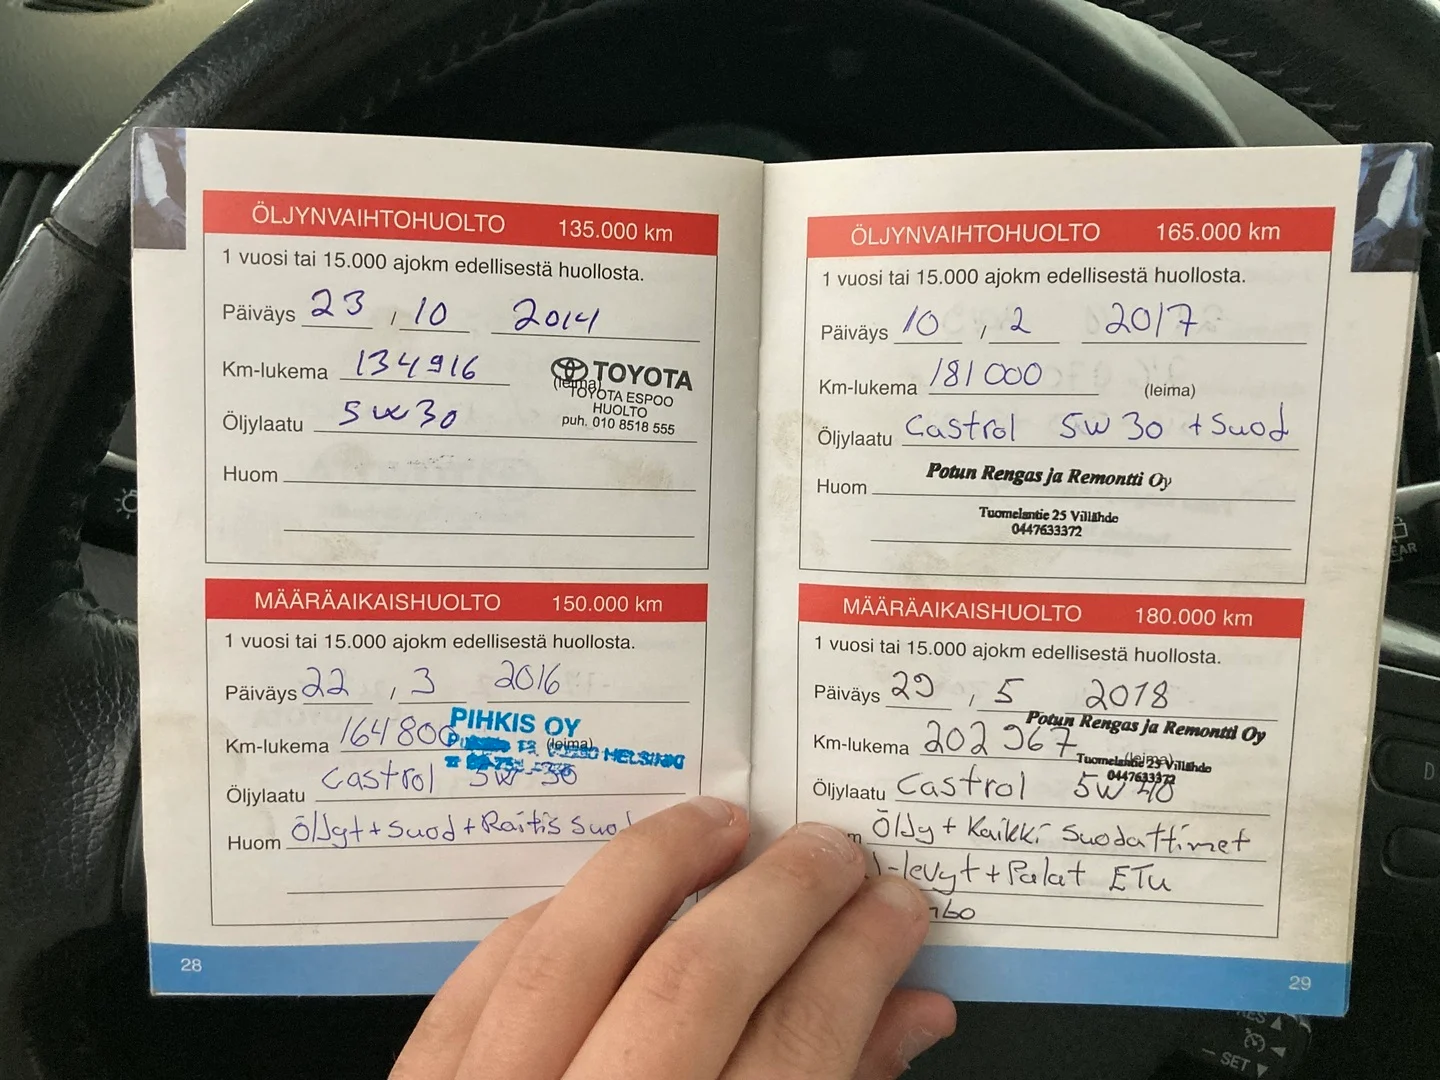 ÖLJYNVAIHTOHUOLTO 135.000 km
1 vuosi tai 15.000 ajokm edellisestä huollosta.
Päiväys 23 , 10 2014
Km-lukema 134916
(leima)
TOYOTA
TOYOTA ESPOO
HUOLTO
puh. 010 8518 555
Öljylaatu 5W30
Huom
MÄÄRÄAIKAISHUOLTO 150.000 km
1 vuosi tai 15.000 ajokm edellisestä huollosta.
Päiväys 22 , 3 2016
Km-lukema 164800
PIHKIS OY
(leima)
HELSINKI
Öljylaatu Castrol 5W-30
Huom Öljyt + Suod + Raitis Suod
28
ÖLJYNVAIHTOHUOLTO 165.000 km
1 vuosi tai 15.000 ajokm edellisestä huollosta.
Päiväys 10 , 2 2017
Km-lukema 181000 (leima)
Öljylaatu Castrol 5W30 + Suod
Potun Rengas ja Remontti Oy
Huom
Tuomelantie 25 Villähde
0447633372
MÄÄRÄAIKAISHUOLTO 180.000 km
1 vuosi tai 15.000 ajokm edellisestä huollosta.
Päiväys 29 , 5 2018
Potun Rengas ja Remontti Oy
Km-lukema 202967 (leima)
Tuomelantie 25 Villähde
0447633372
Öljylaatu Castrol 5W40
Öljy + Kaikki Suodattimet
-levyt + Palat ETU
29
SET